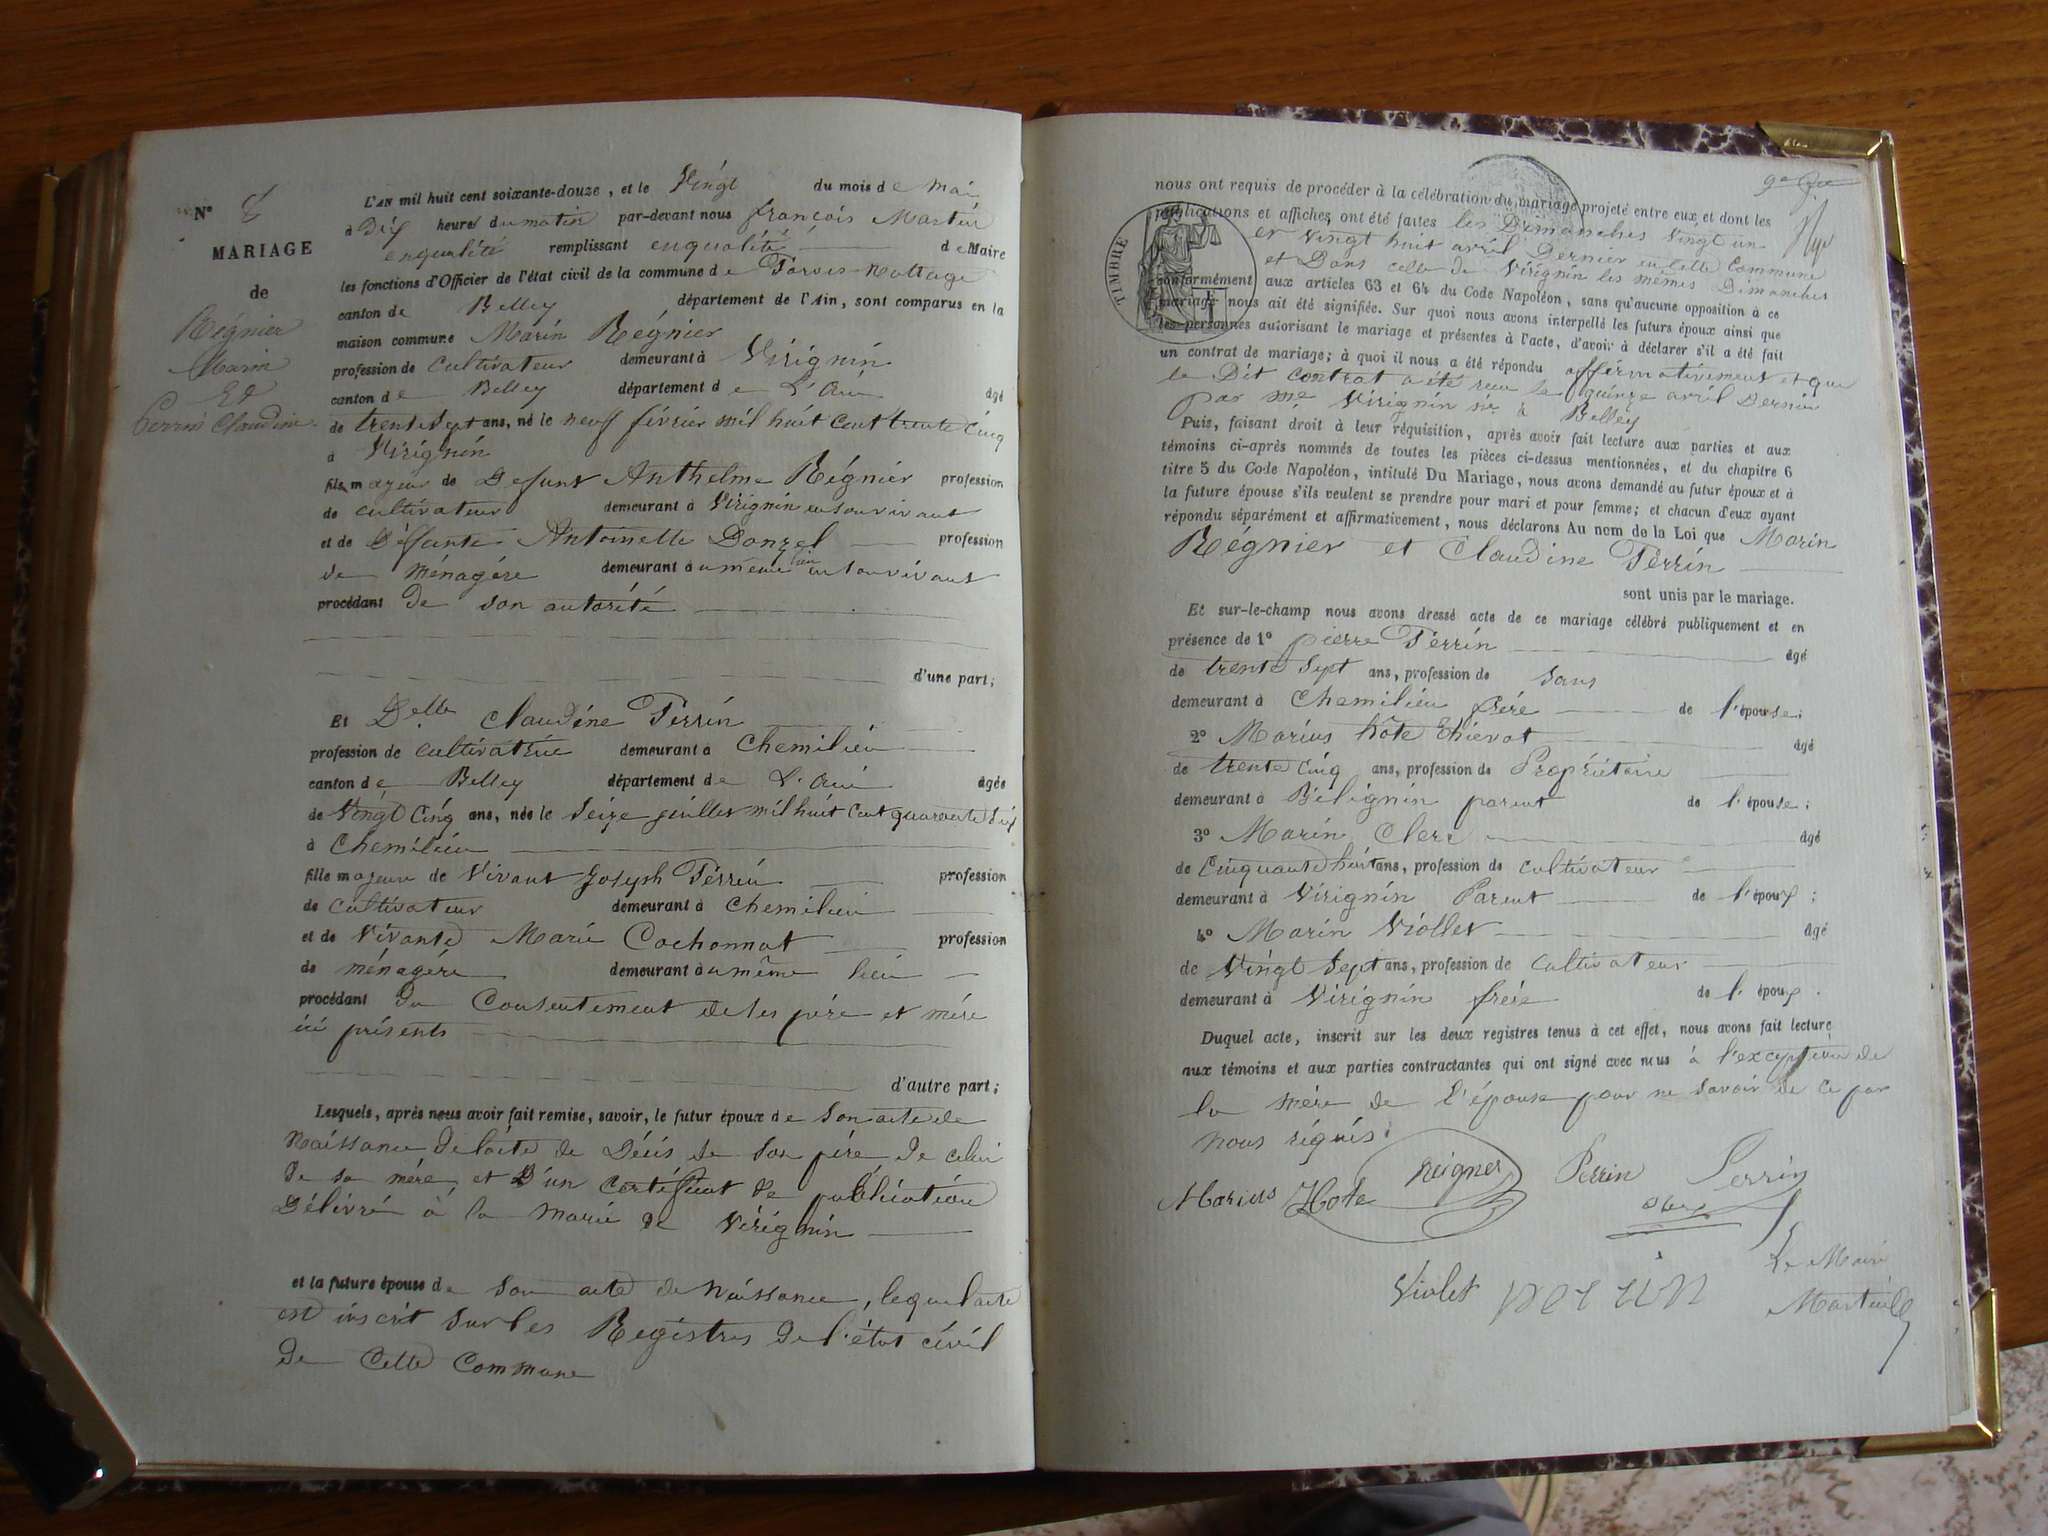 N° 8
MARIAGE
de
Régnier
Marin
Et
Perrin Claudine
L'AN mil huit cent soixante-douze, et le Vingt du mois de Mai
à Dix heures du matin par-devant nous françois Martin
en qualité remplissant en qualité de Maire
les fonctions d'Officier de l'état civil de la commune de Parves-Nattage
canton de Belley département de l'Ain, sont comparus en la
maison commune Marin Régnier
profession de cultivateur demeurant à Virignin
canton de Belley département de L'Ain âgé
de trente Sept ans, né le neuf février mil huit cent trente cinq
à Virignin
fils majeur de Defunt Anthelme Régnier profession
de cultivateur demeurant à Virignin en son vivant
et de Défunte Antoinette Donzel profession
de ménagère demeurant au même lieu en son vivant
procédant de son autorité
d'une part;
Et Delle Claudine Perrin
profession de cultivatrice demeurant à Chemilieu
canton de Belley département de L'Ain âgée
de Vingt Cinq ans, née le Seize juillet mil huit cent quarante Six
à Chemilieu
fille majeure de Vivant Joseph Perrin profession
de cultivateur demeurant à Chemilieu
et de Vivante Marie Cochonnat profession
de ménagère demeurant au même lieu
procédant du Consentement de ses père et mère
ici présents
d'autre part;
Lesquels, après nous avoir fait remise, savoir, le futur époux de Son acte de
Naissance de l'acte de Décès de son père de celui
de sa mère, et D'un certificat de publication
Délivré à la Marie de Virignin
et la future épouse de son acte de Naissance, lequel acte
est inscrit sur les Registres de l'état civil
de Cette Commune
nous ont requis de procéder à la célébration du mariage projeté entre eux et dont les
publications et affiches ont été faites les Dimanches vingt un
et vingt huit avril Dernier en cette Commune
et Dans celle de Virignin les mêmes Dimanches
conformément aux articles 63 et 64 du Code Napoléon, sans qu'aucune opposition à ce
mariage nous ait été signifiée. Sur quoi nous avons interpellé les futurs époux ainsi que
les personnes autorisant le mariage et présentes à l'acte, d'avoir à déclarer s'il a été fait
un contrat de mariage; à quoi il nous a été répondu affirmativement et que
le Dit contrat a été reçu le quinze avril Dernier
par me Virignin à Belley
TIMBRE
Puis, faisant droit à leur réquisition, après avoir fait lecture aux parties et aux
témoins ci-après nommés de toutes les pièces ci-dessus mentionnées, et du chapitre 6
titre 5 du Code Napoléon, intitulé Du Mariage, nous avons demandé au futur époux et à
la future épouse s'ils veulent se prendre pour mari et pour femme; et chacun d'eux ayant
répondu séparément et affirmativement, nous déclarons Au nom de la Loi que Marin
Regnier et Claudine Perrin
sont unis par le mariage.
Et sur-le-champ nous avons dressé acte de ce mariage célébré publiquement et en
présence de 1° pierre Perrin âgé
de trente Sept ans, profession de Sans
demeurant à Chemilieu frère de l'épouse;
2° Marius hôte Thievat âgé
de trente cinq ans, profession de Propriétaire
demeurant à Bélignin parent de l'épouse;
3° Marin Clerc âgé
de Cinquante huit ans, profession de cultivateur
demeurant à Virignin Parent de l'époux;
4° Marin Viollet âgé
de Vingt Sept ans, profession de cultivateur
demeurant à Virignin frère de l'époux.
Duquel acte, inscrit sur les deux registres tenus à cet effet, nous avons fait lecture
aux témoins et aux parties contractantes qui ont signé avec nous à l'exception de
la mère de l'épouse pour ne savoir de ce par
nous réquis.
Marius Hote Reigner Perrin Perrin
Clerc
Violet
Le Maire
Martin